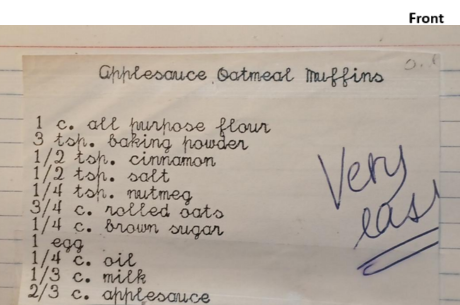 Front
Applesauce Oatmeal Muffins
1 c. all purpose flour
3 tsp. baking powder
1/2 tsp. cinnamon
1/2 tsp. salt
1/4 tsp. nutmeg
3/4 c. rolled oats
1/4 c. brown sugar
1 egg
1/4 c. oil
1/3 c. milk
2/3 c. applesauce
Very
easy